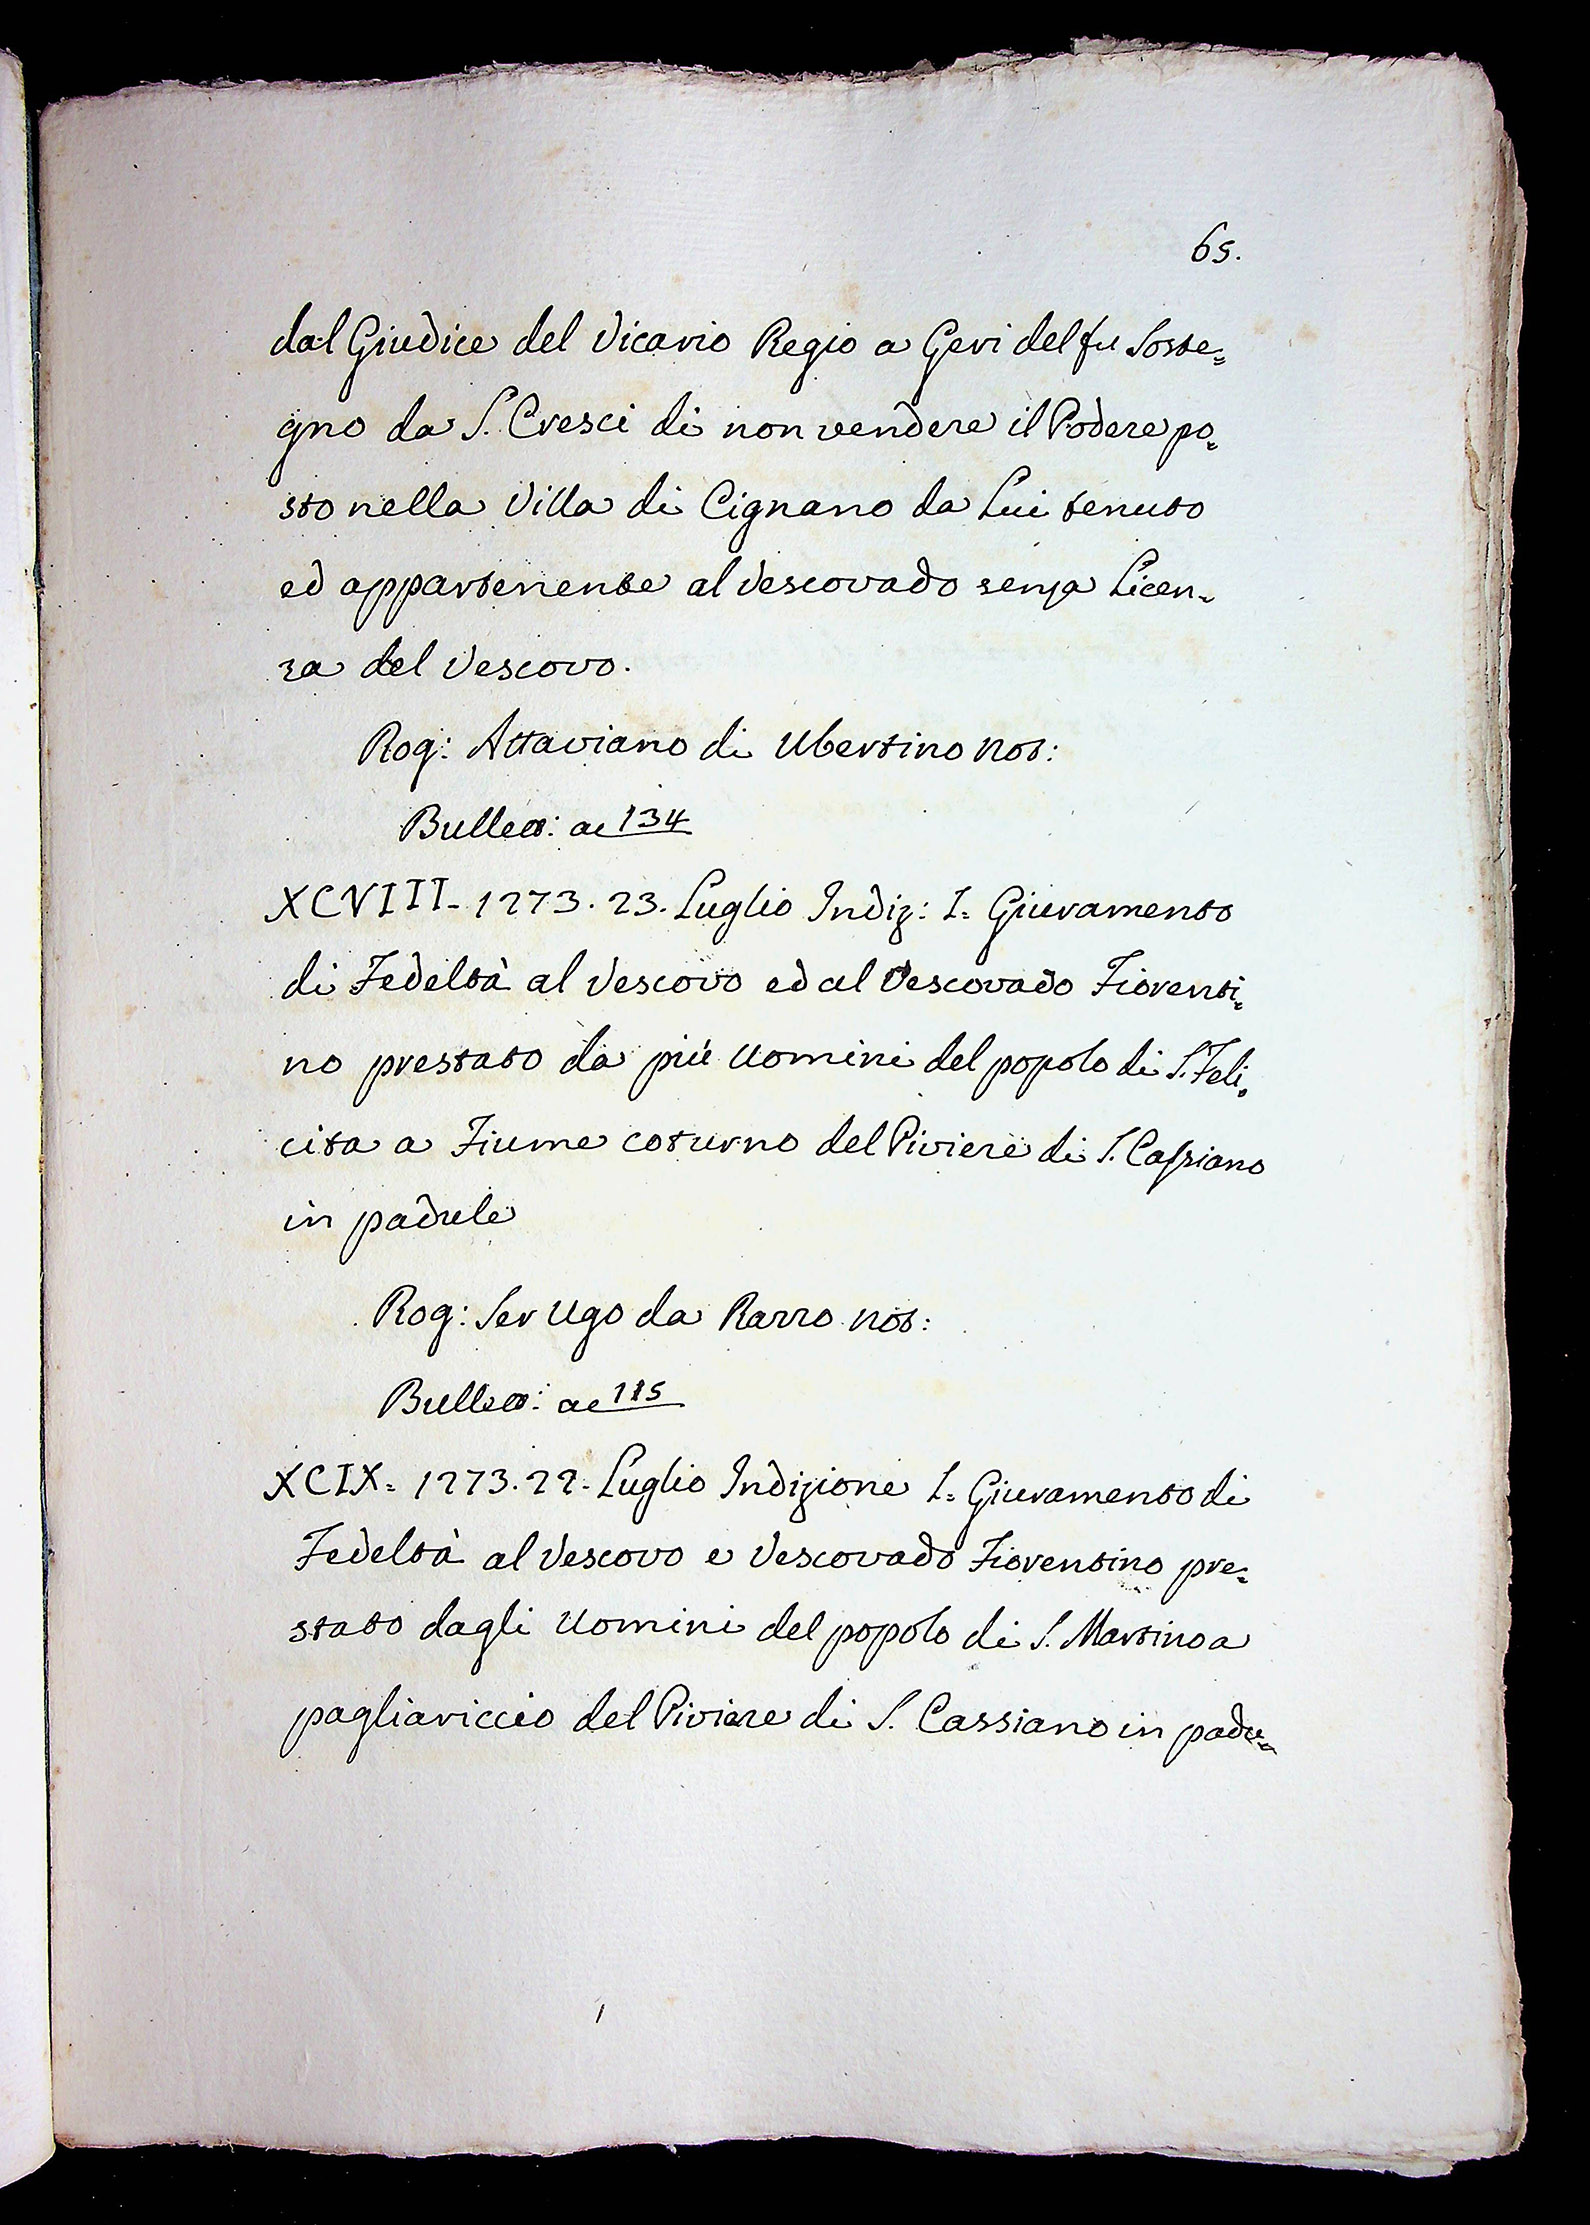 65.
dal Giudice del Vicario Regio a Geri del fu Soste=
gno da S. Cresci di non vendere il Podere po=
sto nella Villa di Cignano da Lui tenuto
ed appartenente al Vescovado senza Licen=
za del Vescovo.
Rog: Attaviano di Ubertino not:
Bullett: a 134
XCVIII- 1273. 23. Luglio Indiz: I= Giuramento
di Fedeltà al Vescovo ed al Vescovado Fiorenti=
no prestato da più Uomini del popolo di S. Feli=
cita a Fiume coturno del Piviere di S. Cassiano
in padule
Rog: Ser Ugo da Razzo not:
Bullett: a 115
XCIX= 1273. 22. Luglio Indizione I= Giuramento di
Fedeltà al Vescovo e Vescovado Fiorentino pre=
stato dagli Uomini del popolo di S. Martino a
pagliariccio del Piviere di S. Cassiano in padu=